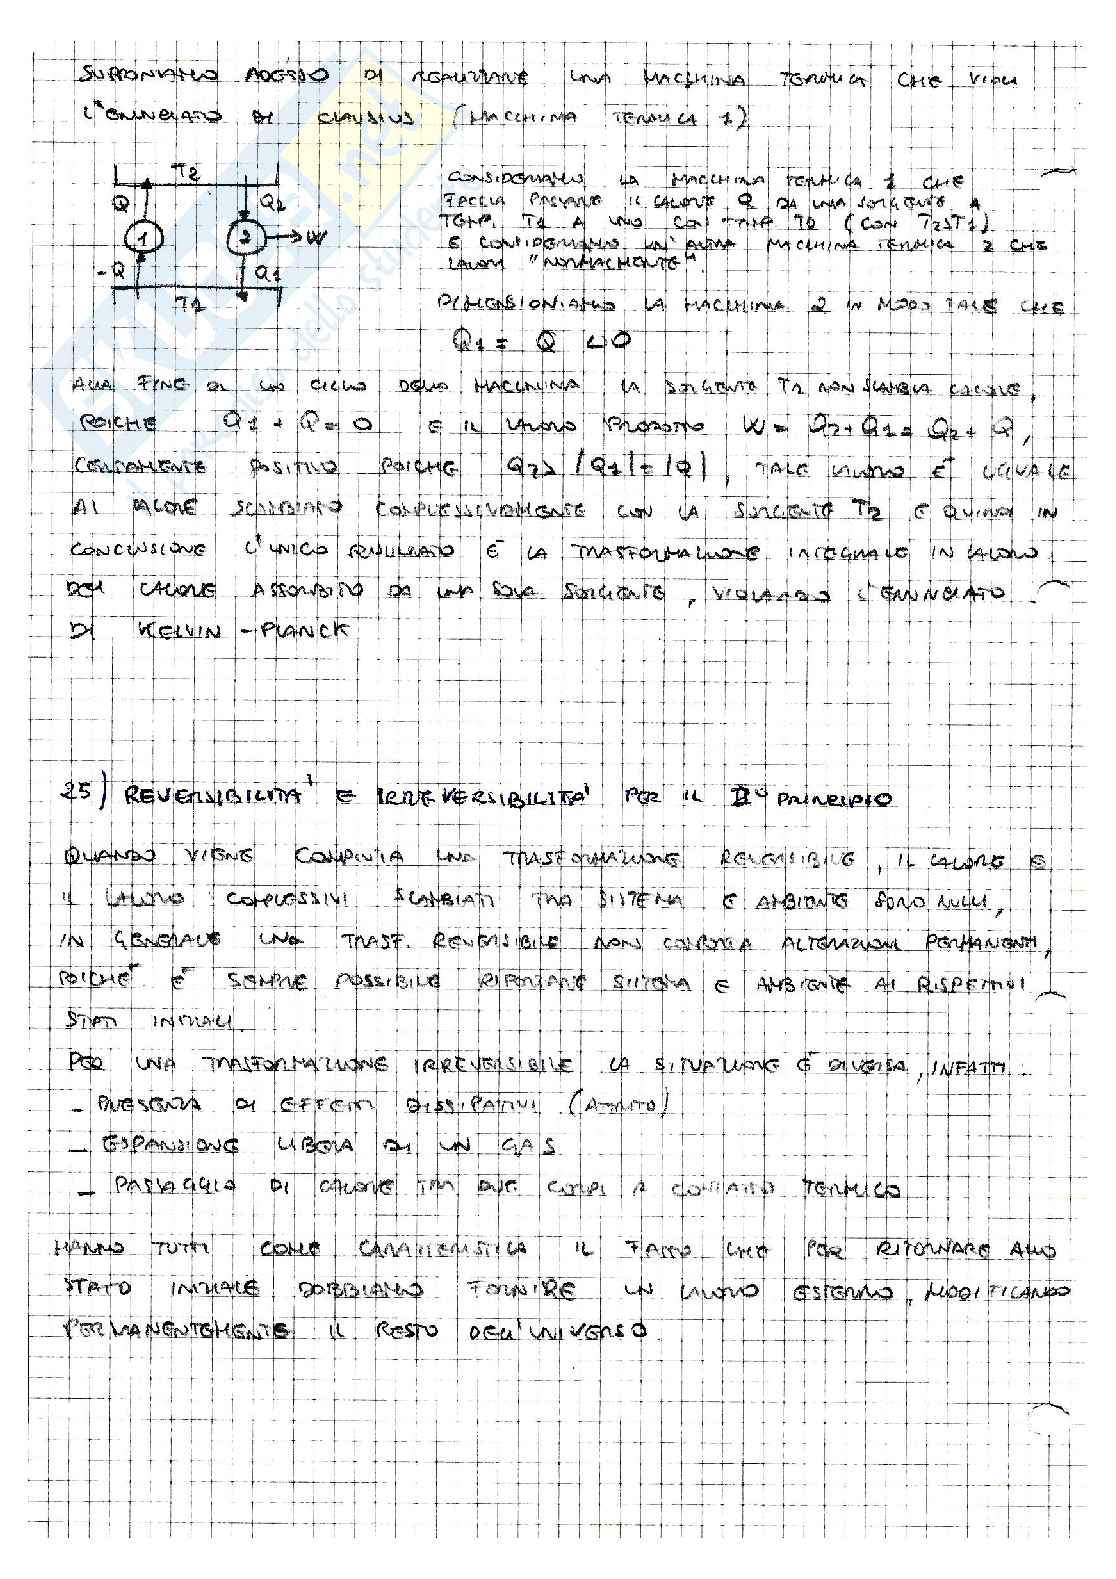 SUPPONIAMO ADESSO DI REALIZZARE UNA MACCHINA TERMICA CHE VIOLI
L'ENUNCIATO DI CLAUSIUS (MACCHINA TERMICA 1)
T2
Q Q2
1 2 W
-Q Q1
T1
CONSIDERIAMO LA MACCHINA TERMICA 1 CHE
FACCIA PASSARE IL CALORE Q DA UNA SORGENTE A
TEMP. T1 A UNO CON TEMP T2 (CON T2>T1)
E CONSIDERIAMO UN'ALTRA MACCHINA TERMICA 2 CHE
LAVORI "NORMALMENTE"
DIMENSIONIAMO LA MACCHINA 2 IN MODO TALE CHE
Q1 = Q <0
ALLA FINE DI UN CICLO DELLA MACCHINA LA SORGENTE T1 NON SCAMBIA CALORE,
POICHE Q1 + Q = 0 E IL LAVORO PRODOTTO W = Q2 + Q1 = Q2 + Q,
CERTAMENTE POSITIVO POICHE Q2 > |Q1| = |Q|, TALE LAVORO È UGUALE
AL CALORE SCAMBIATO COMPLESSIVAMENTE CON LA SORGENTE T2 E QUINDI IN
CONCLUSIONE L'UNICO RISULTATO È LA TRASFORMAZIONE INTEGRALE IN LAVORO
DEL CALORE ASSORBITO DA UNA SOLA SORGENTE, VIOLANDO L'ENUNCIATO
DI KELVIN - PLANCK
25) REVERSIBILITA' E IRREVERSIBILITA' PER IL II° PRINCIPIO
QUANDO VIENE COMPIUTA UNA TRASFORMAZIONE REVERSIBILE, IL CALORE E
IL LAVORO COMPLESSIVI SCAMBIATI TRA SISTEMA E AMBIENTE SONO NULLI,
IN GENERALE UNA TRASF. REVERSIBILE NON COMPORTA ALTERAZIONI PERMANENTI,
POICHÈ È SEMPRE POSSIBILE RIPORTARE SISTEMA E AMBIENTE AI RISPETTIVI
STATI INIZIALI.
PER UNA TRASFORMAZIONE IRREVERSIBILE LA SITUAZIONE È DIVERSA, INFATTI
- PRESENZA DI EFFETTI DISSIPATIVI (ATTRITO)
- ESPANSIONE LIBERA DI UN GAS
- PASSAGGIO DI CALORE TRA DUE CORPI A CONTATTO TERMICO
HANNO TUTTI COME CARATTERISTICA IL FATTO CHE PER RITORNARE ALLO
STATO INIZIALE DOBBIAMO FORNIRE UN LAVORO ESTERNO, MODIFICANDO
PERMANENTEMENTE IL RESTO DELL'UNIVERSO